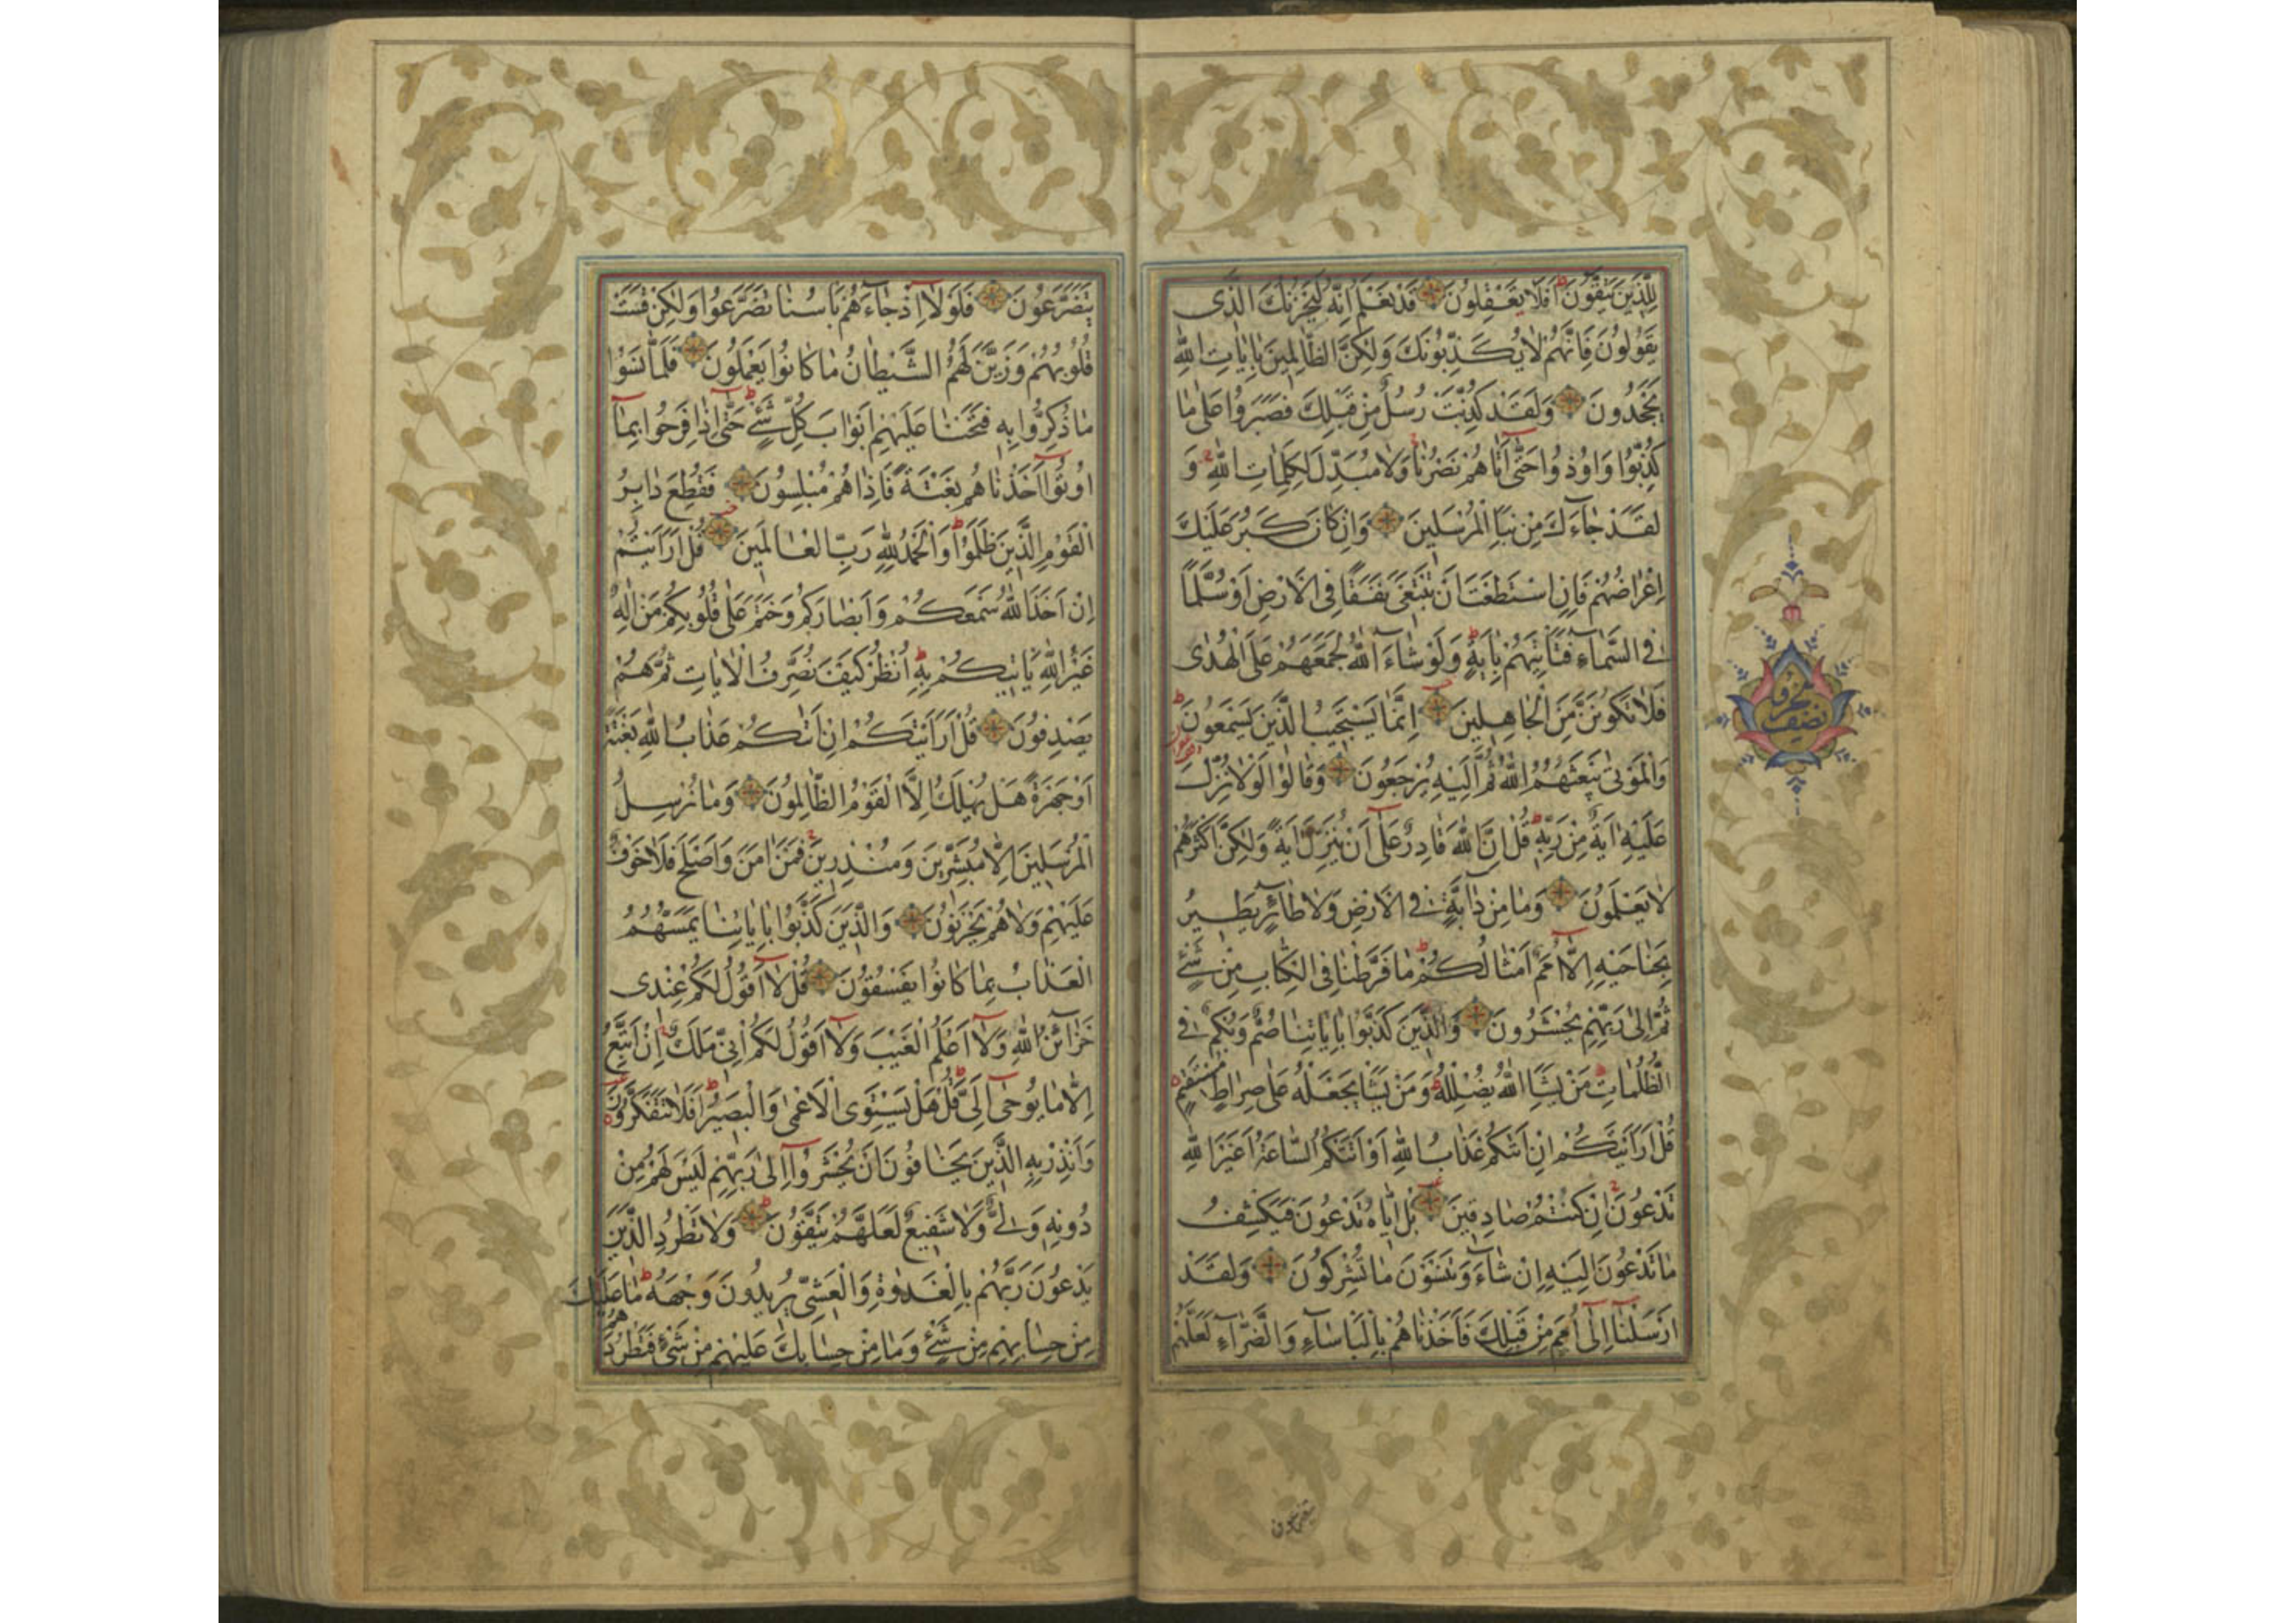 لِلَّذِينَ يَتَّقُونَ اَفَلَا يَعْقِلُونَ قَدْ نَعْلَمُ اِنَّهُ لَيَحْزُنُكَ الَّذِى
يَقُولُونَ فَاِنَّهُمْ لَا يُكَذِّبُونَكَ وَلٰكِنَّ الظَّالِمِينَ بِاٰيَاتِ اللّٰهِ
يَجْحَدُونَ وَلَقَدْ كُذِّبَتْ رُسُلٌ مِنْ قَبْلِكَ فَصَبَرُوا عَلٰى مَا
كُذِّبُوا وَاُوذُوا حَتّٰى اَتَاهُمْ نَصْرُنَا وَلَا مُبَدِّلَ لِكَلِمَاتِ اللّٰهِ وَ
لَقَدْ جَاءَكَ مِنْ نَبَاِ الْمُرْسَلِينَ وَاِنْ كَانَ كَبُرَ عَلَيْكَ
اِعْرَاضُهُمْ فَاِنِ اسْتَطَعْتَ اَنْ تَبْتَغِىَ نَفَقًا فِى الْاَرْضِ اَوْ سُلَّمًا
فِى السَّمَاءِ فَتَاْتِيَهُمْ بِاٰيَةٍ وَلَوْ شَاءَ اللّٰهُ لَجَمَعَهُمْ عَلَى الْهُدٰى
فَلَا تَكُونَنَّ مِنَ الْجَاهِلِينَ اِنَّمَا يَسْتَجِيبُ الَّذِينَ يَسْمَعُونَ
وَالْمَوْتٰى يَبْعَثُهُمُ اللّٰهُ ثُمَّ اِلَيْهِ يُرْجَعُونَ وَقَالُوا لَوْلَا نُزِّلَ
عَلَيْهِ اٰيَةٌ مِنْ رَبِّهِ قُلْ اِنَّ اللّٰهَ قَادِرٌ عَلٰى اَنْ يُنَزِّلَ اٰيَةً وَلٰكِنَّ اَكْثَرَهُمْ
لَا يَعْلَمُونَ وَمَا مِنْ دَابَّةٍ فِى الْاَرْضِ وَلَا طَائِرٍ يَطِيرُ
بِجَنَاحَيْهِ اِلَّا اُمَمٌ اَمْثَالُكُمْ مَا فَرَّطْنَا فِى الْكِتَابِ مِنْ شَيْءٍ
ثُمَّ اِلٰى رَبِّهِمْ يُحْشَرُونَ وَالَّذِينَ كَذَّبُوا بِاٰيَاتِنَا صُمٌّ وَبُكْمٌ فِى
الظُّلُمَاتِ مَنْ يَشَاِ اللّٰهُ يُضْلِلْهُ وَمَنْ يَشَاْ يَجْعَلْهُ عَلٰى صِرَاطٍ مُسْتَقِيمٍ
قُلْ اَرَاَيْتَكُمْ اِنْ اَتٰيكُمْ عَذَابُ اللّٰهِ اَوْ اَتَتْكُمُ السَّاعَةُ اَغَيْرَ اللّٰهِ
تَدْعُونَ اِنْ كُنْتُمْ صَادِقِينَ بَلْ اِيَّاهُ تَدْعُونَ فَيَكْشِفُ
مَا تَدْعُونَ اِلَيْهِ اِنْ شَاءَ وَتَنْسَوْنَ مَا تُشْرِكُونَ وَلَقَدْ
اَرْسَلْنَا اِلٰى اُمَمٍ مِنْ قَبْلِكَ فَاَخَذْنَاهُمْ بِالْبَاْسَاءِ وَالضَّرَّاءِ لَعَلَّهُمْ
يَتَضَرَّعُونَ فَلَوْلَا اِذْ جَاءَهُمْ بَاْسُنَا تَضَرَّعُوا وَلٰكِنْ قَسَتْ
قُلُوبُهُمْ وَزَيَّنَ لَهُمُ الشَّيْطَانُ مَا كَانُوا يَعْمَلُونَ فَلَمَّا نَسُوا
مَا ذُكِّرُوا بِهِ فَتَحْنَا عَلَيْهِمْ اَبْوَابَ كُلِّ شَيْءٍ حَتّٰى اِذَا فَرِحُوا بِمَا
اُوتُوا اَخَذْنَاهُمْ بَغْتَةً فَاِذَا هُمْ مُبْلِسُونَ فَقُطِعَ دَابِرُ
الْقَوْمِ الَّذِينَ ظَلَمُوا وَالْحَمْدُ لِلّٰهِ رَبِّ الْعَالَمِينَ قُلْ اَرَاَيْتُمْ
اِنْ اَخَذَ اللّٰهُ سَمْعَكُمْ وَاَبْصَارَكُمْ وَخَتَمَ عَلٰى قُلُوبِكُمْ مَنْ اِلٰهٌ
غَيْرُ اللّٰهِ يَاْتِيكُمْ بِهِ اُنْظُرْ كَيْفَ نُصَرِّفُ الْاٰيَاتِ ثُمَّ هُمْ
يَصْدِفُونَ قُلْ اَرَاَيْتَكُمْ اِنْ اَتٰيكُمْ عَذَابُ اللّٰهِ بَغْتَةً
اَوْ جَهْرَةً هَلْ يُهْلَكُ اِلَّا الْقَوْمُ الظَّالِمُونَ وَمَا نُرْسِلُ
الْمُرْسَلِينَ اِلَّا مُبَشِّرِينَ وَمُنْذِرِينَ فَمَنْ اٰمَنَ وَاَصْلَحَ فَلَا خَوْفٌ
عَلَيْهِمْ وَلَا هُمْ يَحْزَنُونَ وَالَّذِينَ كَذَّبُوا بِاٰيَاتِنَا يَمَسُّهُمُ
الْعَذَابُ بِمَا كَانُوا يَفْسُقُونَ قُلْ لَا اَقُولُ لَكُمْ عِنْدِى
خَزَائِنُ اللّٰهِ وَلَا اَعْلَمُ الْغَيْبَ وَلَا اَقُولُ لَكُمْ اِنِّى مَلَكٌ اِنْ اَتَّبِعُ
اِلَّا مَا يُوحٰى اِلَىَّ قُلْ هَلْ يَسْتَوِى الْاَعْمٰى وَالْبَصِيرُ اَفَلَا تَتَفَكَّرُونَ
وَاَنْذِرْ بِهِ الَّذِينَ يَخَافُونَ اَنْ يُحْشَرُوا اِلٰى رَبِّهِمْ لَيْسَ لَهُمْ مِنْ
دُونِهِ وَلِىٌّ وَلَا شَفِيعٌ لَعَلَّهُمْ يَتَّقُونَ وَلَا تَطْرُدِ الَّذِينَ
يَدْعُونَ رَبَّهُمْ بِالْغَدٰوةِ وَالْعَشِىِّ يُرِيدُونَ وَجْهَهُ مَا عَلَيْكَ
مِنْ حِسَابِهِمْ مِنْ شَيْءٍ وَمَا مِنْ حِسَابِكَ عَلَيْهِمْ مِنْ شَيْءٍ فَتَطْرُدَهُمْ
يتضرعون